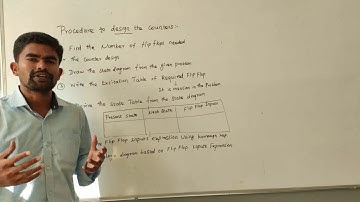 Procedure to design the Counters:-
Find the Number of flip flops needed
the counter design
Draw the State diagram from the given problem
③ Write the Excitation Table of Required Flip Flop
It is mention in the Problem
the State Table from the State diagram
Present State Next State Flip Flop Inputs
Flip Flop Inputs expression Using Karnaugh map
diagram based on Flip Flop Inputs Expression